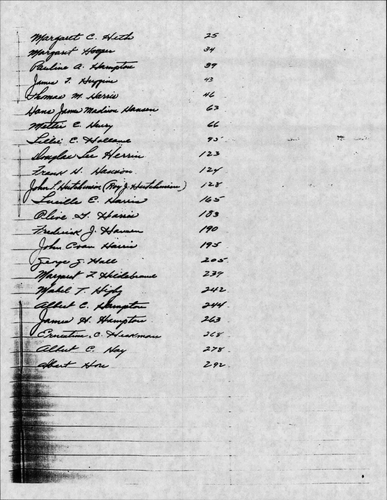 Margaret C. Heth 25
Margaret Hooper 34
Pauline A. Hampton 39
James T. Huggins 43
Thomas M. Harris 46
Hans James Madison Hansen 63
Walter C. Harry 66
Lillie C. Holland 95
Douglas Lee Herrin 123
Frank H. 124
John S. Hutchinson (Roy J. Hutchinson) 128
Lucille E. Harris 165
Olive G. Harris 183
Frederick J. Hansen 190
John Evan Harris 195
George J. Hall 205
Margaret L. Hildebrand 237
Mabel T. Higby 242
Albert C. Hampton 244
James H. Hampton 263
Ernestine C. Heckman 268
Albert C. Hay 278
Albert 292